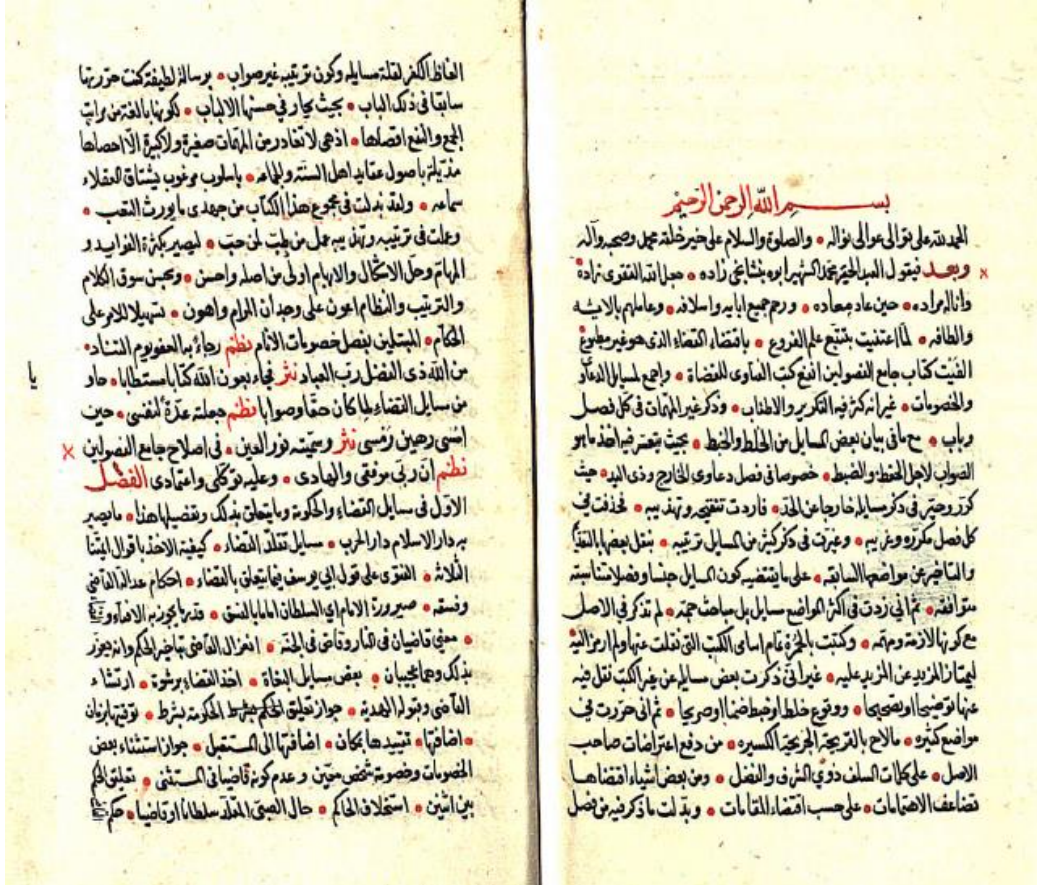 بسم الله الرحمن الرحيم
الحمد لله على توالى عوالى نواله والصلوة والسلام على خير خلقه محمد وصحبه وآله
وبعد فيقول العبد الحقير محمد الشهير ابوه بنشانجى زاده جعل الله التقوى زاده
وانا له مراده حين عاد معاده ورحم جميع ابائه واسلافه وعاملهم بالابثة
والطافه لما اعتنيت بتتبع علم الفروع باقتضاء القضاء الذى هو غير مطبوع
الفيت كتاب جامع الفصولين انفع كتب الفتاوى للقضاة واجمع لمسائل الدعاوى
والخصومات غير انه كثر فيه التكرير والاطناب وذكر غير المهمات فى كل فصل
وباب مع ما فى بيان بعض المسايل من الخلط والخبط بحيث يتعسر فيه اخذ ما هو
الصواب لاهل الحفظ والضبط خصوصا فى فصل دعاوى الخارج وذى اليد حيث
كرر وحير فى ذكر مسايله خارجا عن الحد فاردت تنقيحه وتهذيبه فحذفت فى
كل فصل مكرره وغريبه وغيرت فى ذكر كثير من المسايل ترتيبه بنقل بعضها بالتقديم
والتاخير عن مواضعها السابقه على ما يقتضيه كون المسايل جنسا وفصلا متناسبة
متوافقه ثم انى زدت فى اكثر المواضع مسايل بل مباحث جمة لم تذكر فى الاصل
مع كونها لازمة ومهمه وكتبت بالحمرة تمام اسامى الكتب التى نقلت عنها ولم ارمز اليه
ليمتاز المزيد عن المزيد عليه غير انى ذكرت بعض مسايل عن غير اكتب نقل فيه
عنها توضيحا او تصحيحا ووقوع خلط او خبط ضمنا او صريحا ثم انى حررت فى
مواضع كثيره ما لاح بالقريحة الجريحة الكسيره من دفع اعتراضات صاحب
الاصل على كلمات السلف ذوي الشرف والفضل ومن بعض اشياء اقتضاها
تضاعف الاهتمامات على حسب اقتضاء المقامات وبدلت ما ذكر فيه من فصل
الفاظ الكفر لقلة مسايله وكون ترتيبه غير صواب برسالة لطيفة كنت حررتها
سابقا فى ذلك الباب بحيث يحار فى حسنها الالباب لكونها بالغة من مراتب
الجمع والنفع اقصاها اذ هى لا تغادر من المهمات صغيرة ولا كبيرة الا احصاها
مذيلة باصول عقايد اهل السنة والجماعه باسلوب مرغوب يشتاق العقلاء
سماعه ولقد بذلت فى مجموع هذا الكتاب من جهدى ما يورث التعب
وعملت فى ترتيبه وتهذيبه عمل من طب لمن حب ليصير بكثرة الفرايد و
المهام وحل الاشكال والابهام اولى من اصله واحسن وبحسن سوق الكلام
والترتيب والنظام اعون على وجدان المرام واهون تسهيلا للامر على
الحكام المبتلين بفصل خصومات الأنام نظم رجاء به العفو يوم التناد
من الله ذى الفضل رب العباد نثر فجاء بعون الله كتابا مستطابا حاو
من مسايل القضاء لما كان حقا وصوابا نظم جعلته عدة لنفسى حين
امسى رهين رمسى نثر وسميته نور العين فى اصلاح جامع الفصولين
نظم ان ربى موفقى والهادى وعليه توكلى واعتمادى الفصل
الاول فى مسايل القضاء والحكومة وما يتعلق بذلك وتفصيلها هذا ما يصير
به دار الاسلام دار الحرب مسايل تقلد القضاء كيفية الاخذ باقوال ائمتنا
الثلاثة الفتوى على قول ابى يوسف فيما يتعلق بالقضاء احكام عدالة القاضى
وفسقه صيرورة الامام اي السلطان اماما بالفسق قدر ما يجوز به الافتاء و
معنى قاضيان فى النار وقاض فى الجنة انعزال القاضى بتاخير الحكم وانه يعزر
بذلك وهما عجيبان بعض مسايل البغاة اخذ القضاء برشوة ارتشاء
القاضى وقبوله الهدية جواز تعليق الحكم بشرط الحكومة بشرط توقيتها بزمان
اضافتها تقييدها بمكان اضافتها الى المستقبل جواز استثناء بعض
الخصومات وخصومة شخص معين وعدم كونه قاضيا فى المستثنى تعليق الحكم
بين اثنين استخلاف الحاكم حال الصبى المقلد سلطانا او قاضيا حكم
يا